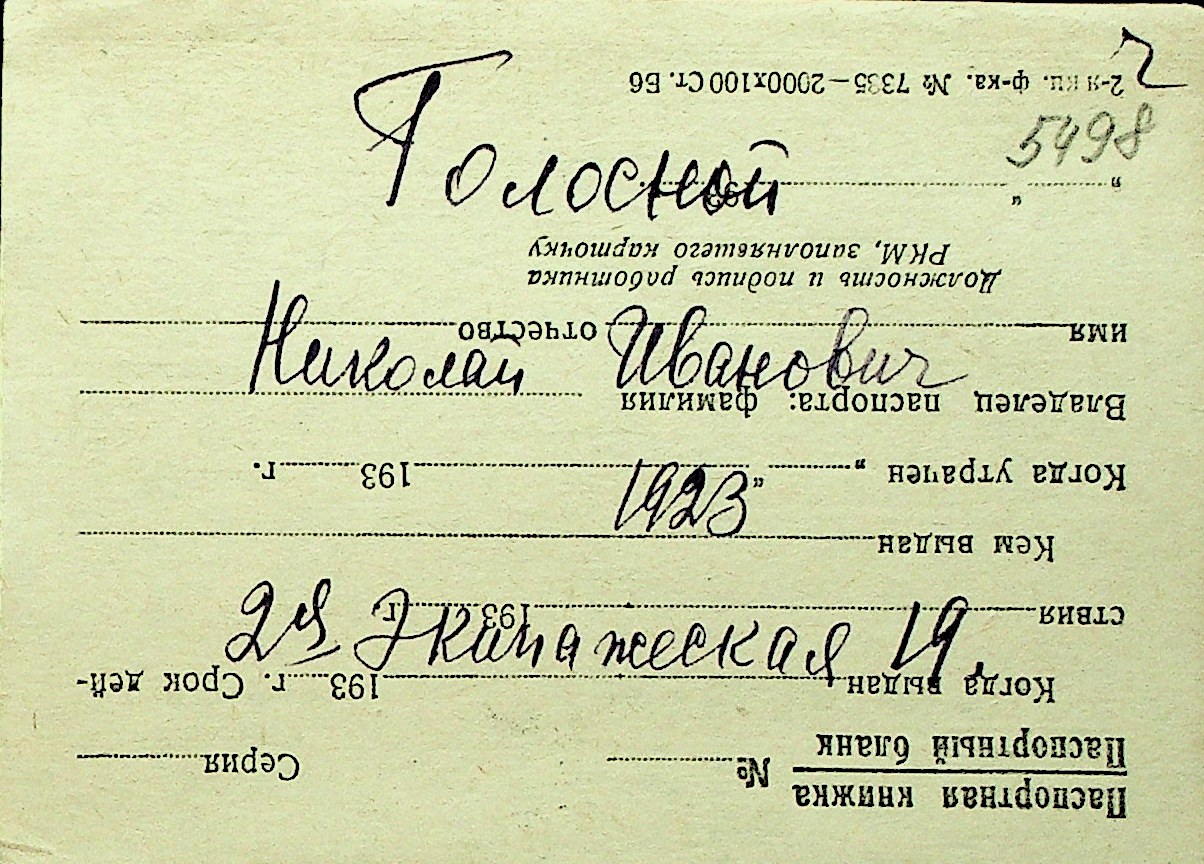 г
5498
Голосной
Николай Иванович
1923
2я Экипажеская 19.
Паспортная книжка
Паспортный бланк № Серия
Когда выдан 193 г. Срок дей-
ствия 193 г.
Кем выдан
Когда утрачен „ “ 193 г.
Владелец паспорта: фамилия
имя отчество
Должность и подпись работника
РКМ, заполнявшего карточку
„ “ 193
2-я кн. ф-ка. № 7335—2000х100 Ст. Бб